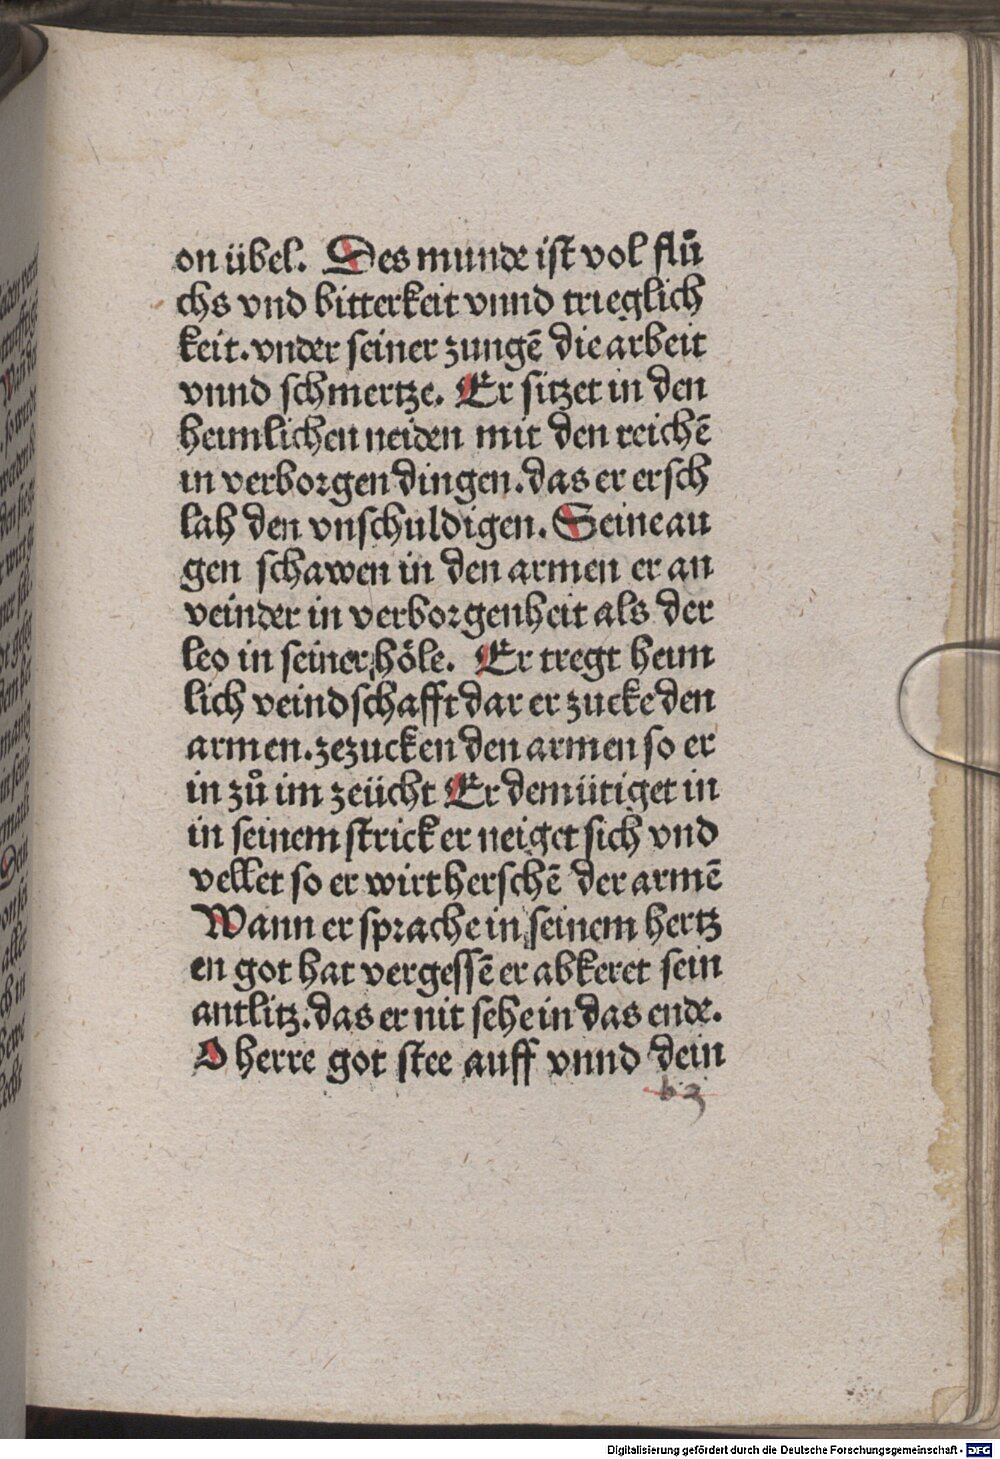 on übel. Des munde ist vol flů
chs vnd bitterkeit vnnd trieglich
keit. vnder seiner zungē die arbeit
vnnd schmertze. Er sitzet in den
heimlichen neiden mit den reichē
in verborgen dingen. das er ersch
lah den vnschuldigen. Seine au
gen schawen in den armen er an
veinder in verborgenheit als der
leo in seiner höle. Er tregt heim
lich veindschafft dar er zucke den
armen. zezucken den armen so er
in zů im zeücht Er demütiget in
in seinem strick er neiget sich vnd
vellet so er wirt herschē der armē
Wann er sprache in seinem hertz
en got hat vergessē er abkeret sein
antlitz. das er nit sehe in das ende.
O herre got stee auff vnnd dein
b 3
Digitalisierung gefördert durch die Deutsche Forschungsgemeinschaft - DFG